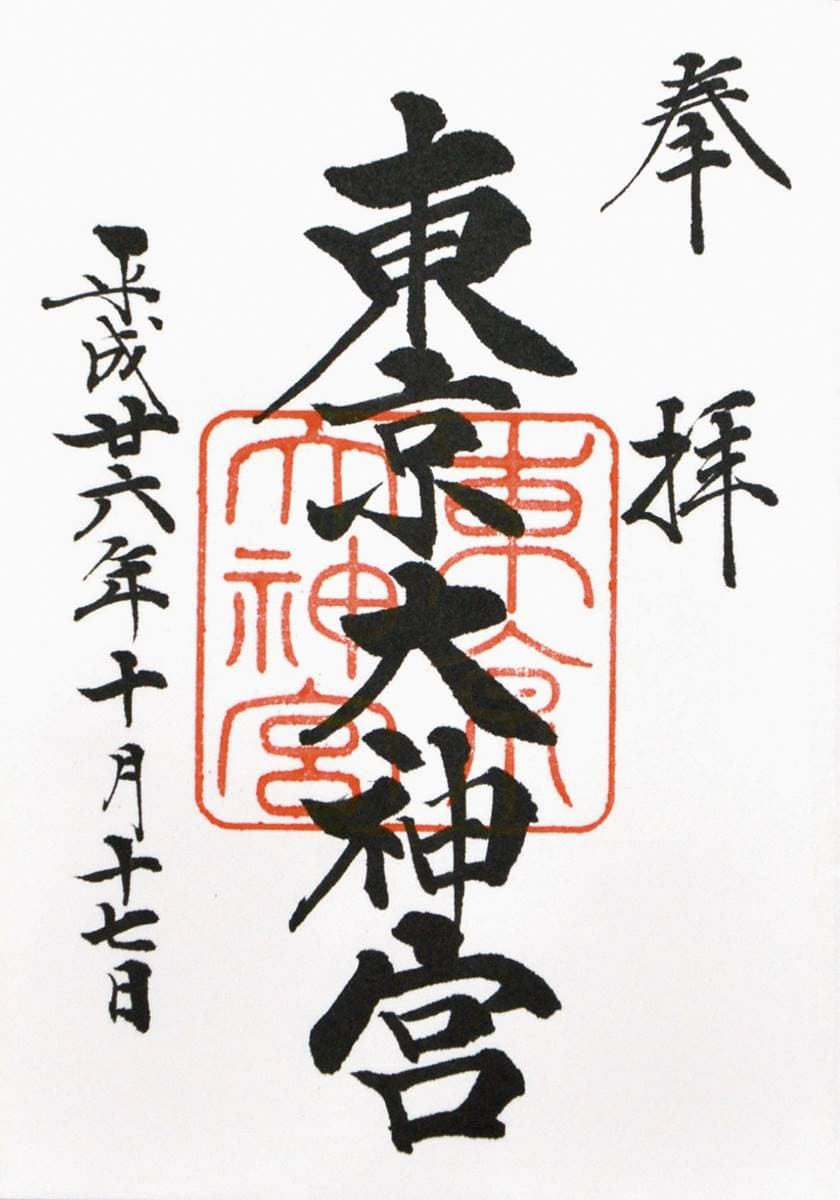 奉拝
東京大神宮
東京
大神宮
平成廿六年十月十七日